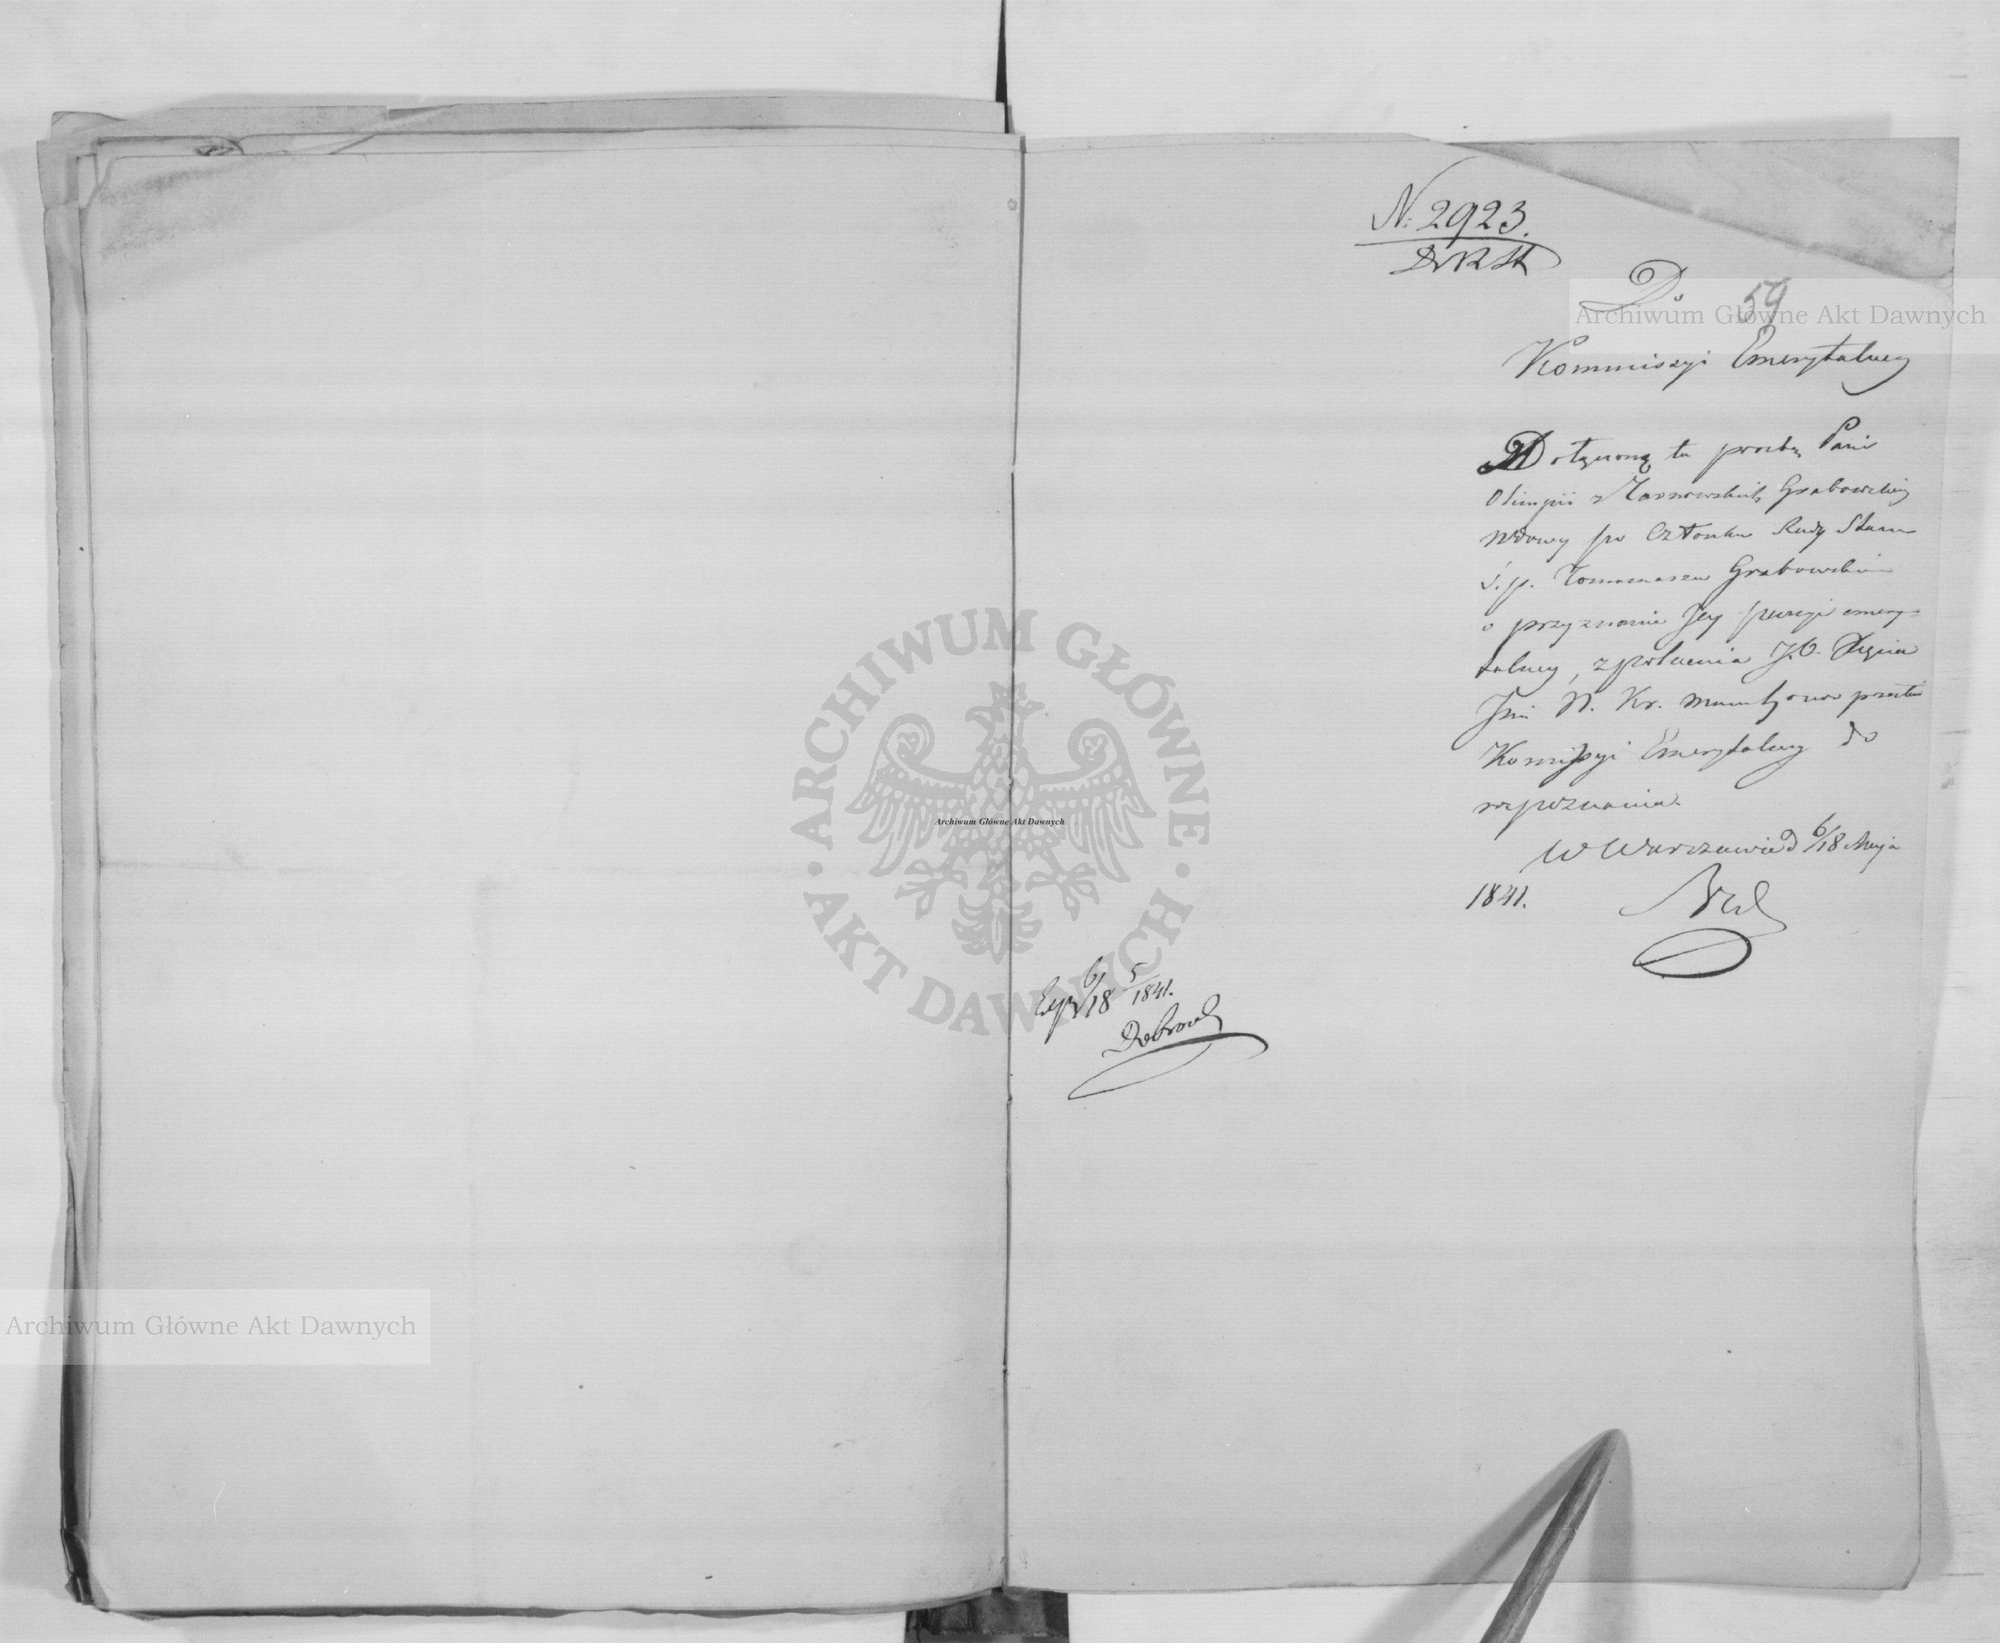 N: 2923.
59
Do
Kommissyi Emerytalney
Dołączoną tu prośbę Pani
Olimpii z Tarnowskich Grabowskiey
Wdowy po Członku Rady Stanu
ś. p. Tommasza Grabowskim
o przyznanie Jey pensyi emery-
talney, z polecenia J. O. Xięcia
Jmi N. Kr. mam honor przesłać
Komissyi Emerytalney do
rozpoznania.
W Warszawie d 6/18 Maja
1841.
Exp 6/18 5/1841.
Archiwum Główne Akt Dawnych
ARCHIWUM GŁÓWNE AKT DAWNYCH
Archiwum Główne Akt Dawnych
Archiwum Główne Akt Dawnych